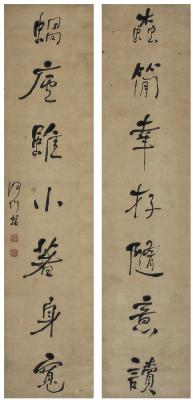 蠹簡幸存隨意讀
蝸廬雖小著身寬
何紹基